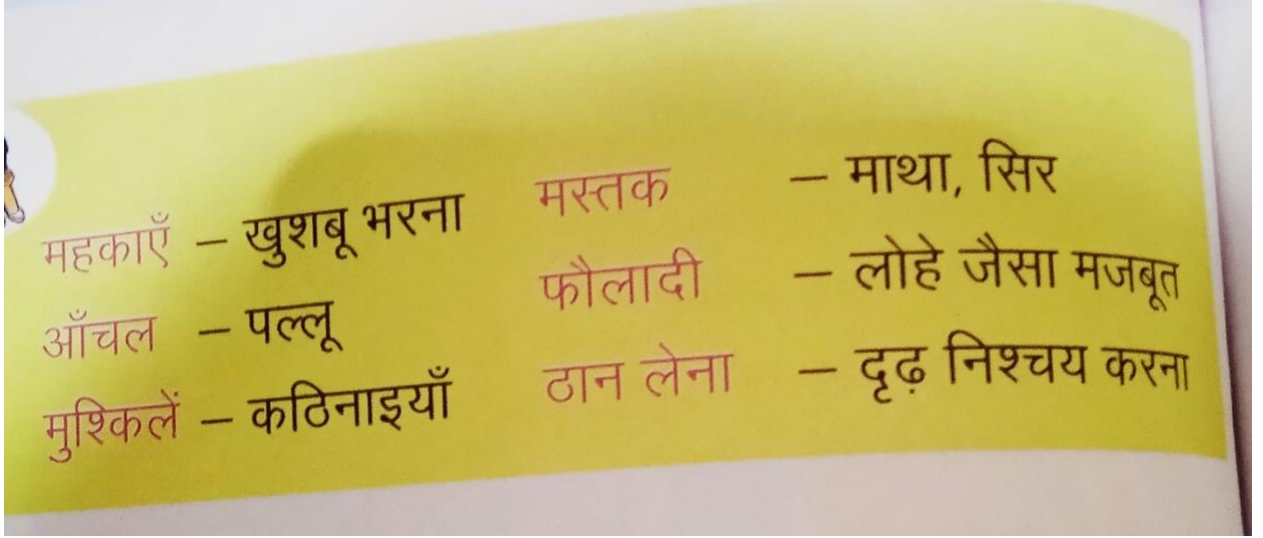 महकाएँ – खुशबू भरना
आँचल – पल्लू
मुश्किलें – कठिनाइयाँ
मस्तक – माथा, सिर
फौलादी – लोहे जैसा मजबूत
ठान लेना – दृढ़ निश्चय करना